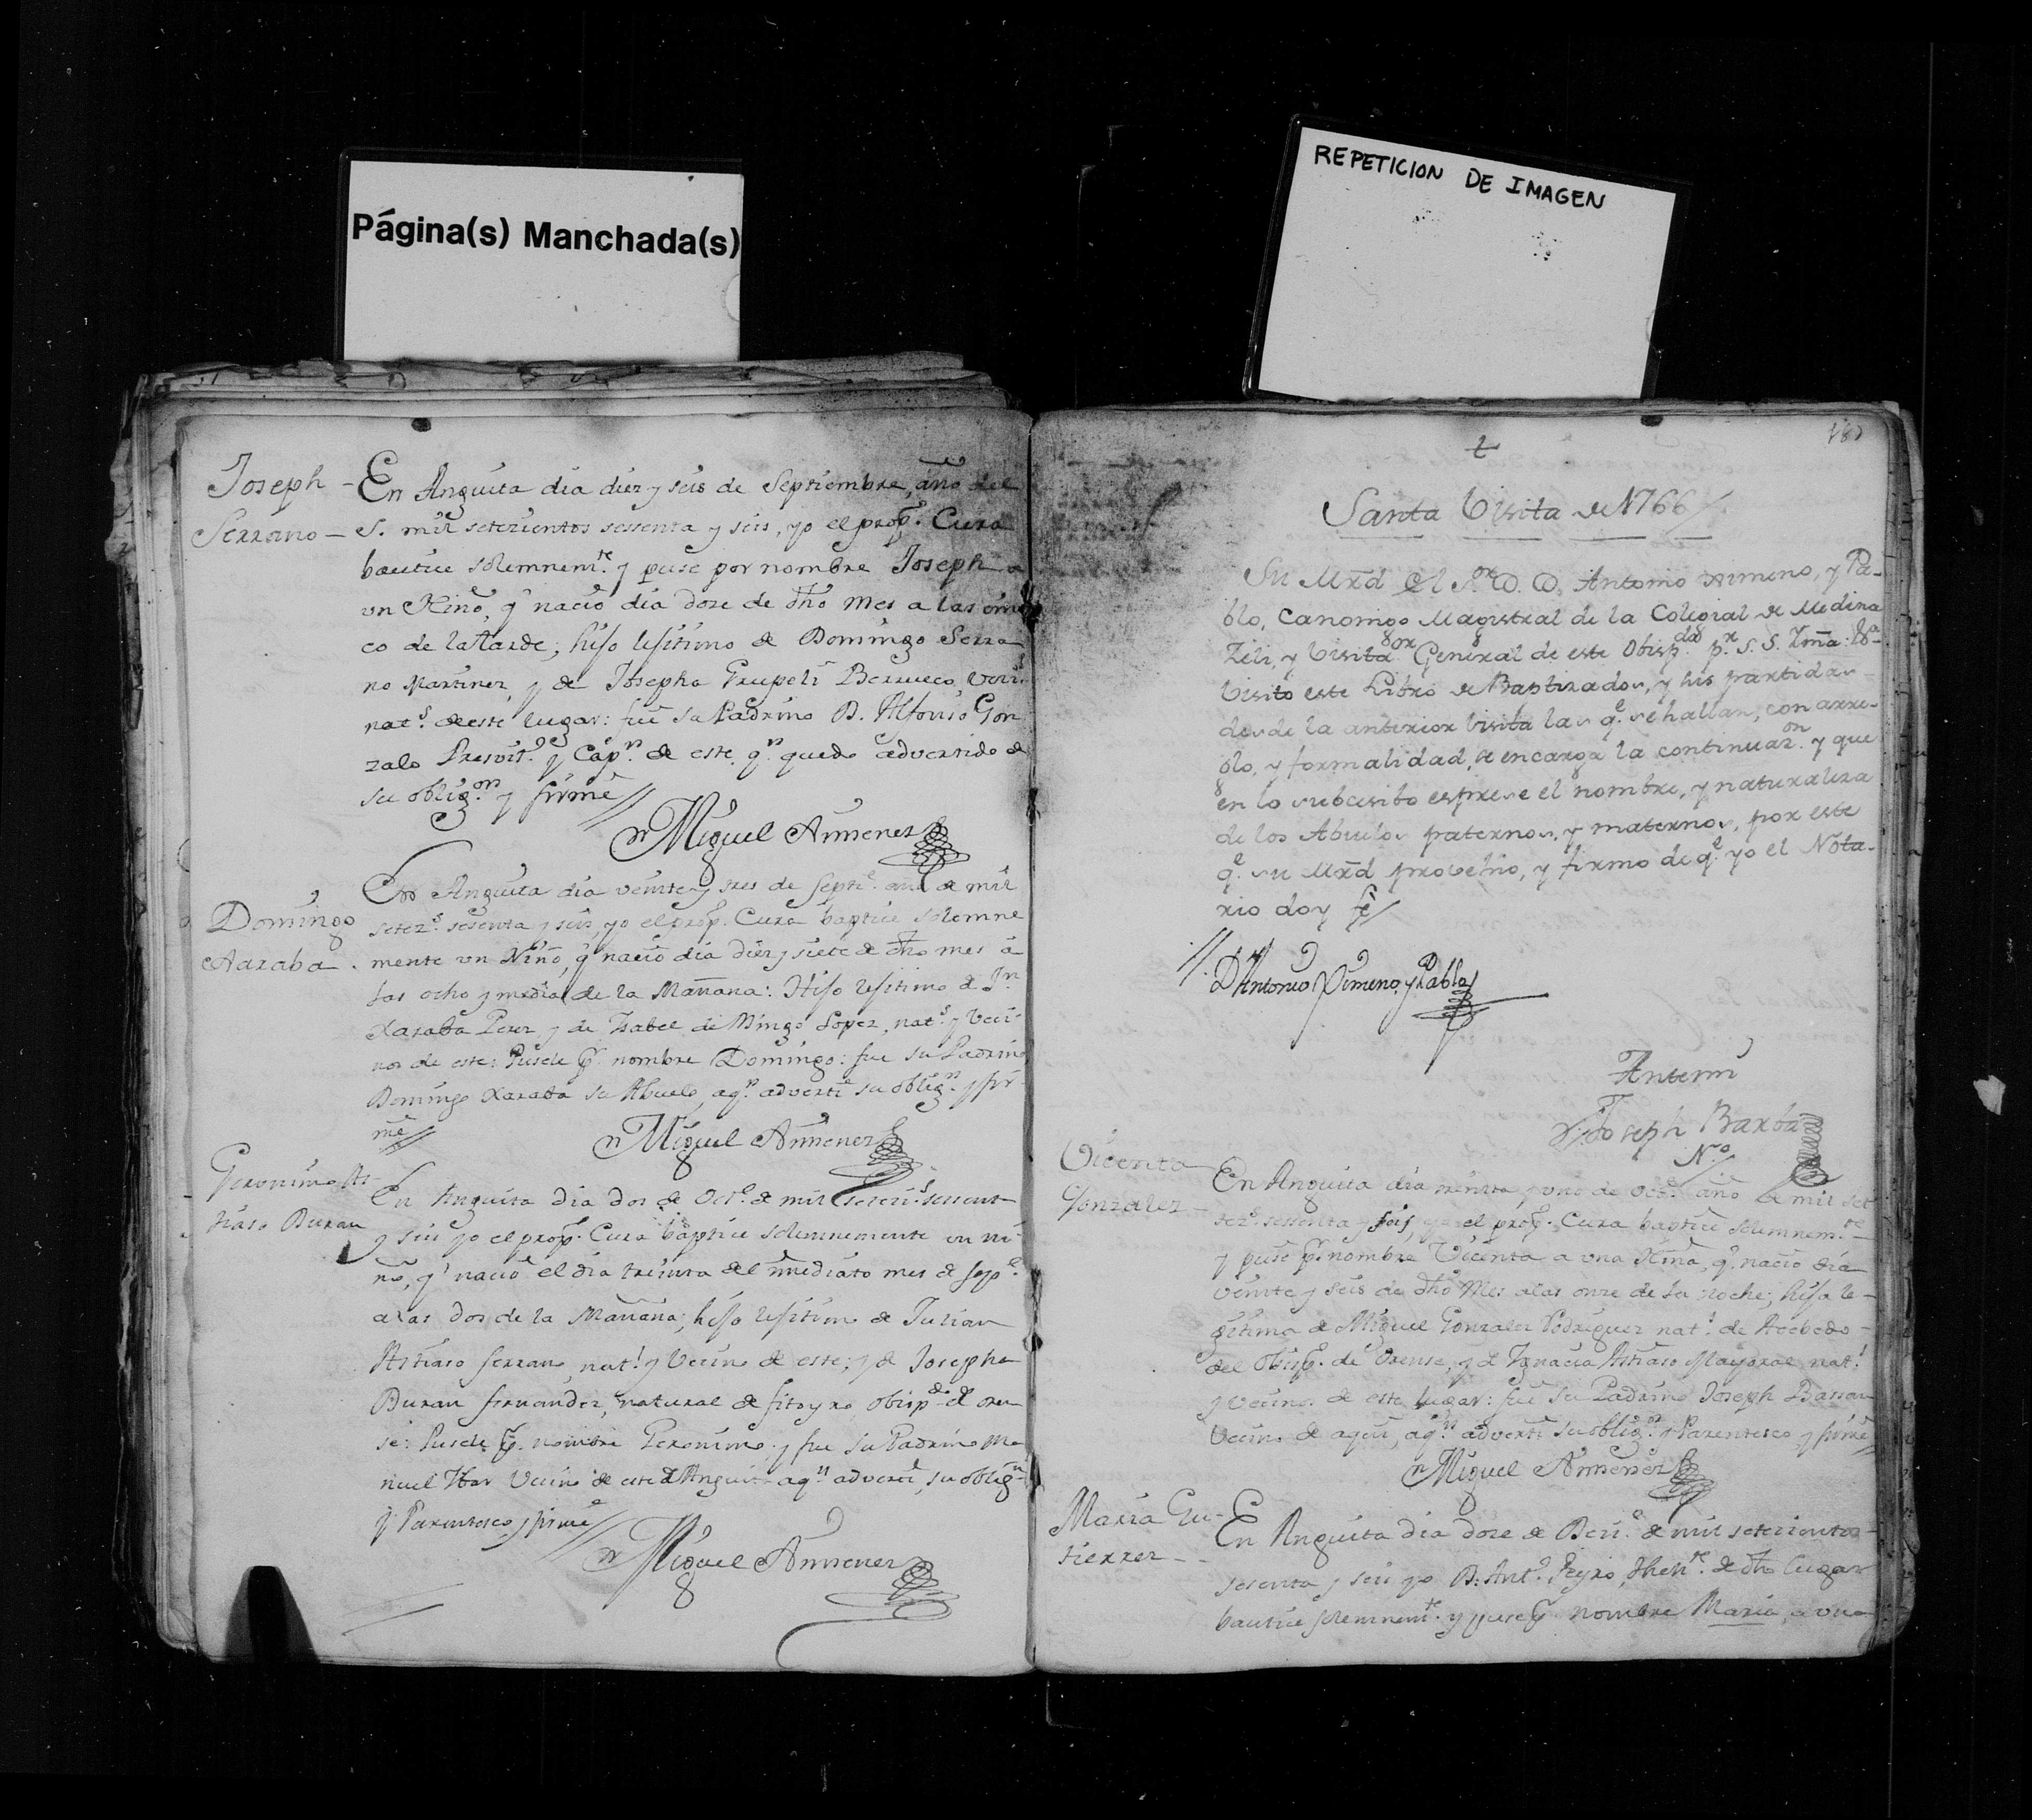 Página(s) Manchada(s)
REPETICION DE IMAGEN
Joseph
Serrano
En Anguita dia diez y seis de Septiembre, año del
S. mil setezientos sessenta y seis, yo el propº. Cura
bautice solemnemte. y puse por nombre Joseph a
un Niño, q nacio dia doze de dho mes a las cin
co de la tarde; hijo lesitimo de Domingo Serra
no Martinez, y de Josepha Berrueco, Vezs.
nats. de este lugar: fue su Padrino D. Alfonso Gon
zalo Presvit.º y Capn. de este, qn. quedo advertido de
su obligon. y firmé
Dn Miguel Ximenez
Domingo
Xaraba
En Anguita dia veinte y tres de Septe. año de mil
setezs. sesenta y seis, yo el propº. Cura baptice solemne
mente un Niño, q nacio dia diez y siete de dho mes a
las ocho y media de la Mañana: Hijo lesitimo de Jn.
Xaraba Perez y de Isabel de Mingo Lopez, nats. y Veci
nos de este: Pusele pr. nombre Domingo: fue su Padrino
Domingo Xaraba su Abuelo, aqn. adverti su obligon. y fir
mé
Dn Miguel Ximenez
Geronimo As
tiaso Duran
En Anguita dia dos de Octe. de mil setecis. sessenta
y seis yo el propº. Cura baptice solemnemente un ni
ño, q nacio el dia treinta del immediato mes de Sepe.
a las dos de la Mañana; hijo lesitimo de Julian
Astiaso Serrano, natl. y Vecino de este; y de Josepha
Duran Fernandez, natural de obispdo. de oren
se: Pusele pr. nombre Geronimo; y fue su Padrino Ma
nuel Vecino de este de Anguita aqn. adverti su obligon.
y Parentesco, y firmé
Dn Miguel Ximenez
Santa Visita de 1766
Su Mrd el Sor. D. D. Antonio Ximeno, y Pa-
blo, Canonigo Magistral de la Colegial de Medina
Zeli, y Visitador General de este Obispdo. pr. S. S. Yma:
Visito este Libro de Baptizados, y sus partidas
desde la anterior Visita las qe. se hallan, con arre-
glo, y formalidad, se encarga la continuazon. y que
en lo subcesibo esprese el nombre, y naturaleza
de los Abuelos paternos, y maternos, por este
qe. su Mrd probehio, y firmo de qe. yo el Nota-
rio doy fe
Dn Antonio Ximeno, y Pablo
Antemi
Joseph Barba
No.
Vicenta
Gonzalez
En Anguita dia treinta y uno de Octe. año de mil set
tezs. sessenta y seis, yo el propº. Cura baptice solemnemte.
y puse pr. nombre Vicenta a una Niña, q. nacio dia
veinte y seis de dho Mes a las onze de la noche; hija le-
gitima de Miguel Gonzalez Rodriguez natl. de Acebedo
del Obispº. de Orense, y de Ignacia Astiaso Mayoral natl.
y Vecinos de este lugar: fue su Padrino Joseph
Vecino de aqui, aqn. adverti su obligon. y Parentesco y firmé
Dn Miguel Ximenez
Maria Gu-
tierrez
En Anguita dia doze de Deze. de mil setecientos
sesenta y seis yo D. Ante. Peyro, Thente. de dho Lugar
bautice solemnemte. y puse pr. nombre Maria, a una